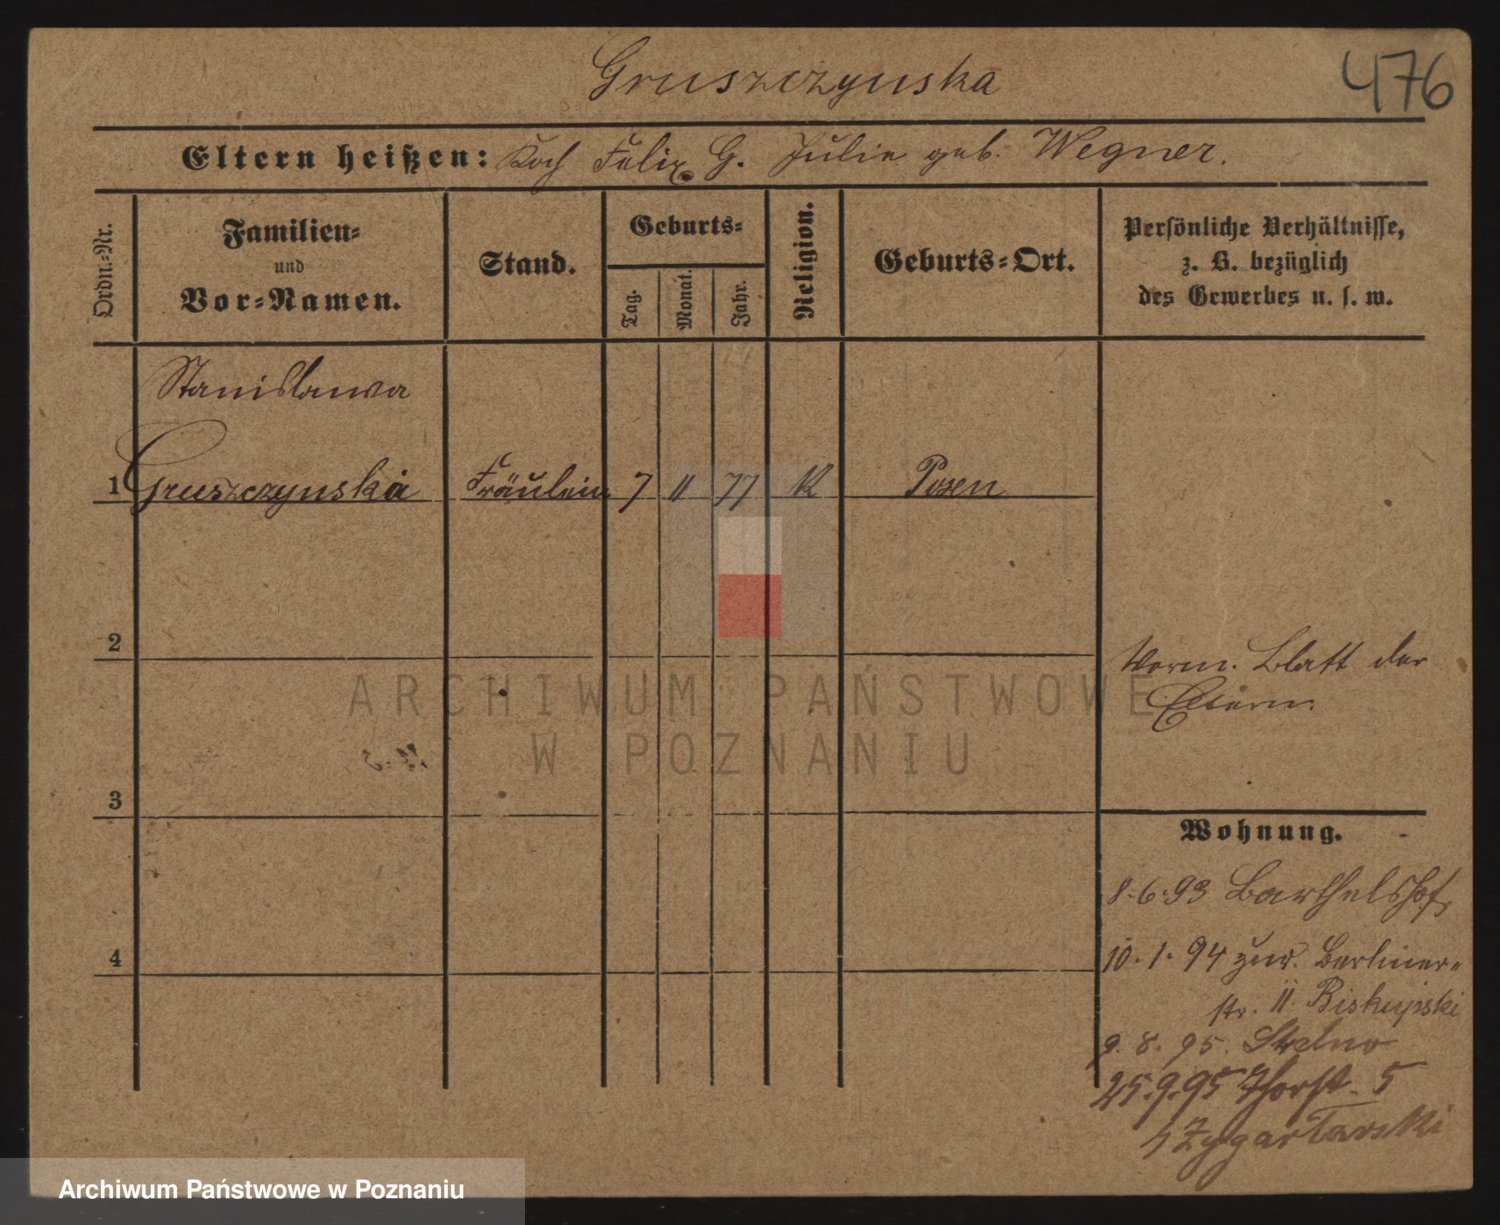 Gruszczynska
476
Eltern heißen: Koch Felix G. Julie geb. Wegner.
Ordn.-Nr.
Familien-
und
Vor-Namen.
Stand.
Geburts-
Tag.
Monat.
Jahr.
Religion.
Geburts-Ort.
Persönliche Verhältnisse,
z. B. bezüglich
des Gewerbes u. s. w.
Stanislawa
1 Gruszczynska Fräulein 7 11 77 K Posen
2
Vorm. Blatt der
Eltern.
ARCHIWUM PAŃSTWOWE
W POZNANIU
3
Wohnung.
8.6.93 Barthelshof
4
10.1.94 zur. Berliner-
str. 11 Biskupski
9.8.95. Strelno
25.9.95 Thorst. 5
Zygarlowski
Archiwum Państwowe w Poznaniu